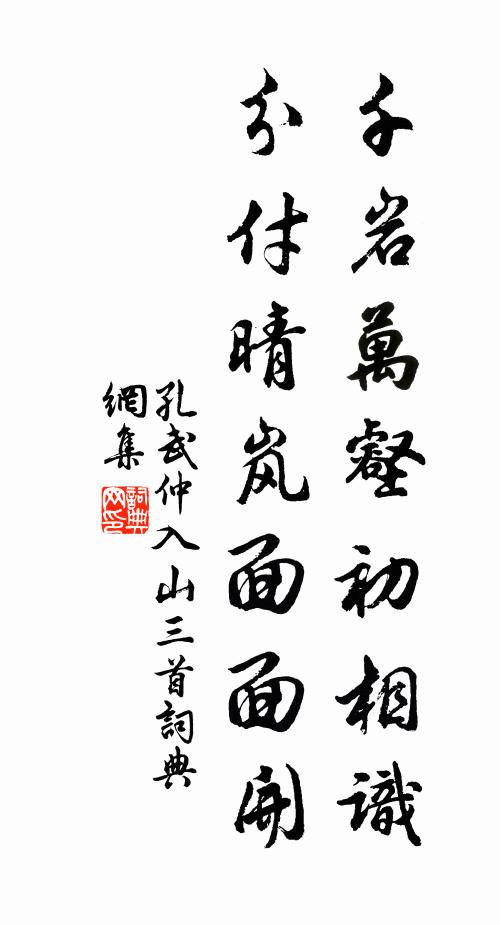 千岩萬壑初相識
分付晴岚面面開
孔武仲入山三首詞典
網集
詞典
网印